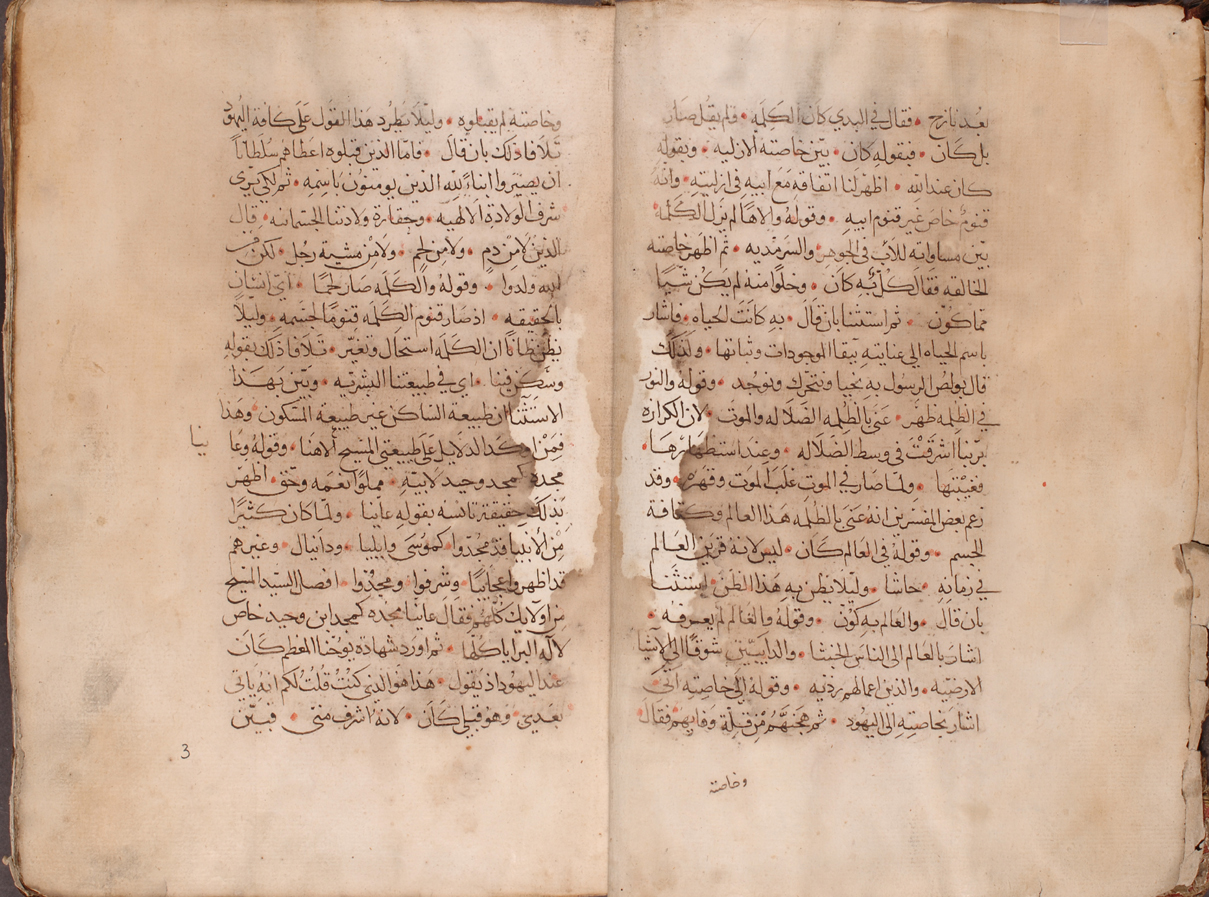 بعد نازح • فقال في البدي كان الكلمه • فلم يقل صار
بل كان • فبقوله كان • بين خاصته الازليه • وبقوله
كان عند الله • اظهر لنا اتفاقه مع ابيه في ازليته • وانه
قنوم خاص غير قنوم ابيه • وقوله والاها لم يزل الكلمه •
بين مساواته للاب في الجوهر والسرمديه • ثم اظهر خاصته
الخالقه فقال كل به كان • وخلوا منه لم يكن شيا
مما كون • ثم استثنا بان قال • به كانت الحياه • فاشار
باسم الحياه الي عنايته ببقا الموجودات وثباتها • ولذلك
قال بولص الرسول به نحيا ونتحرك ونوجد • وقوله والنور
في الظلمه ظهر • عني بالظلمه الضلاله والموت • لان الكرازه
بربنا اشرقت في وسط الضلاله • وعند استظهارها •
فغيبتها • ولما صار في الموت غلب الموت وقهره • وقد
زعم بعض المفسرين انه عني بالظلمه هذا العالم وكثافة
الجسم • وقوله في العالم كان • ليس لانه قرين العالم
في زمانه • حاشا • وليلا نظن به هذا الظن • استثنت
بان قال • والعالم به كون • وقوله والعالم لم يعرفه •
اشار بالعالم الى الناس الخبثا • والدايبين شوقا الي الاشيا
الارضيه • والذين اعمالهم رديه • وقوله الي خاصته اتى
اشار بخاصته الى اليهود • ثم هجنهم من قلة وفايهم فقال
وخاصته
وخاصته لم يقبلوه • وليلا يطرد هذا القول على كافة اليهود
تلافا ذلك بان قال • فاما الذين قبلوه اعطاهم سلطانا
ان يصيروا ابناء لله الذين يومنون باسمه • ثم لكي يري
شرف الولادة الالهيه • وحقارة ولادتنا الجسمانيه • قال
الذين لا من دم • ولا من لحم • ولا من مشية رجل • لكن من
الله ولدوا • وقوله والكلمه صار لحما • اي انسان
بالحقيقه • اذ صار قنوم الكلمه قنوما لجسمه • وليلا
يظن ظانا ان الكلمه استحال وتغير • تلافا ذلك بقوله
وسكن فينا • اي في طبيعتنا البشريه • وبين بهذا
الاستثنا ان طبيعة الساكن غير طبيعة المسكون • وهذا
فمن اوكد الدلايل على طبيعتي المسيح الاهنا • وقوله وعا
ينا
مجده كمجد وحيد لابيه • مملوا نعمه وحق • اظهر
بذلك حقيقة تانسه بقوله عاينا • ولما كان كثيرا
من الانبيا قد مجدوا كموسى وايليا • ودانيال • وغيرهم
قد اظهروا عجايبا • وشرفوا • ومجدوا • افصل السيد المسيح
من اولايك كلهم فقال عاينا مجده كمجد ابن وحيد خاص
لاله البرايا كلها • ثم اورد شهادة يوحنا المعظم كان
عند اليهود اذ يقول • هذا هو الذي كنت قلت لكم انه ياتي
بعدي • وهو قبلي كان • لانه اشرف مني • فبين
3